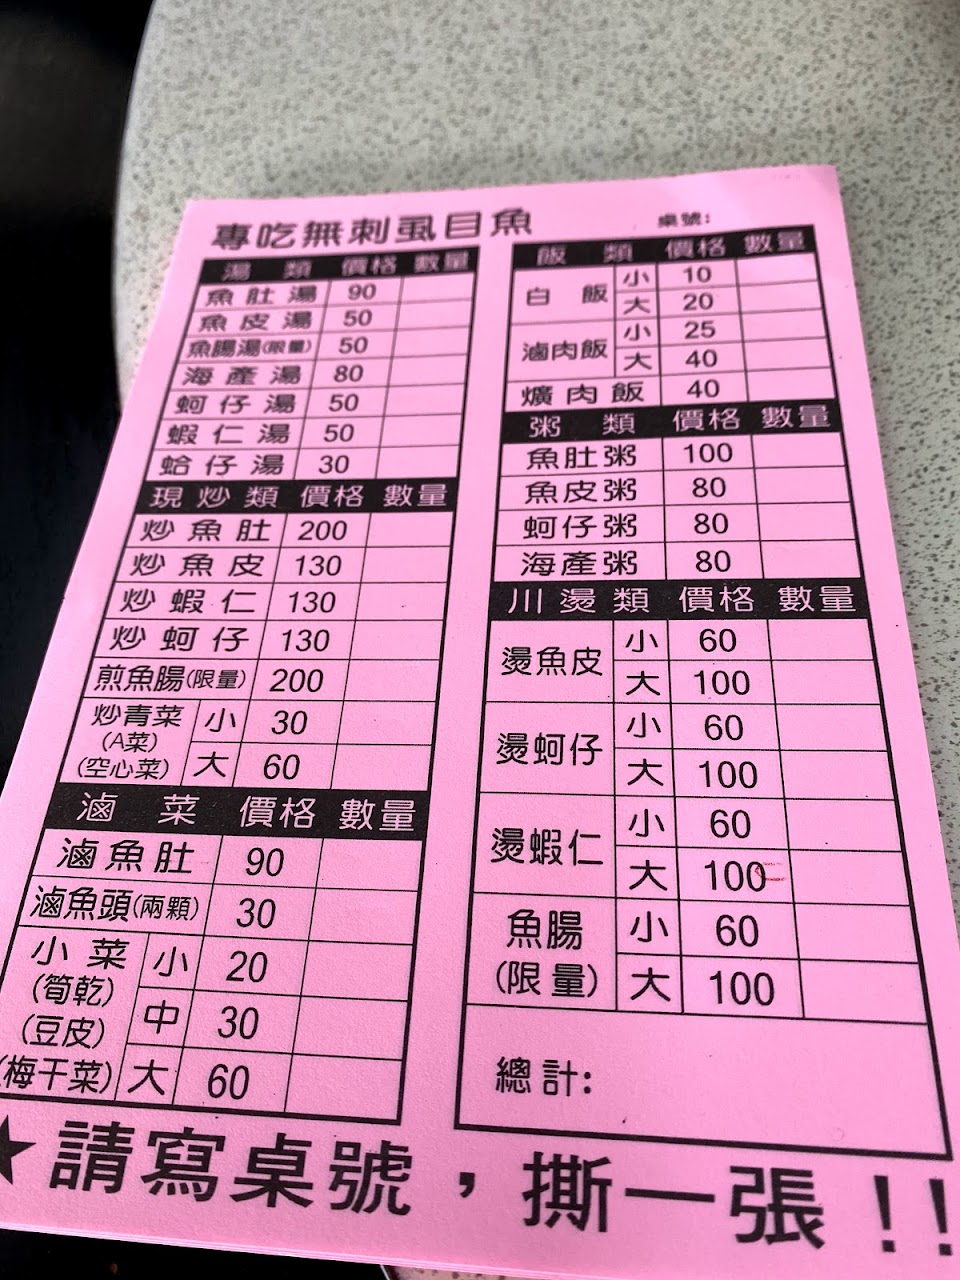 專吃無刺虱目魚
桌號:
湯類 價格 數量
魚肚湯 90
魚皮湯 50
魚腸湯(限量) 50
海產湯 80
蚵仔湯 50
蝦仁湯 50
蛤仔湯 30
現炒類 價格 數量
炒魚肚 200
炒魚皮 130
炒蝦仁 130
炒蚵仔 130
煎魚腸(限量) 200
炒青菜 小 30
(A菜)
(空心菜) 大 60
滷菜 價格 數量
滷魚肚 90
滷魚頭(兩顆) 30
小菜 小 20
(筍乾)
中 30
(豆皮)
(梅干菜) 大 60
飯類 價格 數量
白飯 小 10
大 20
滷肉飯 小 25
大 40
爌肉飯 40
粥類 價格 數量
魚肚粥 100
魚皮粥 80
蚵仔粥 80
海產粥 80
川燙類 價格 數量
燙魚皮 小 60
大 100
燙蚵仔 小 60
大 100
燙蝦仁 小 60
大 100
魚腸 小 60
(限量) 大 100
總計:
★請寫桌號，撕一張!!